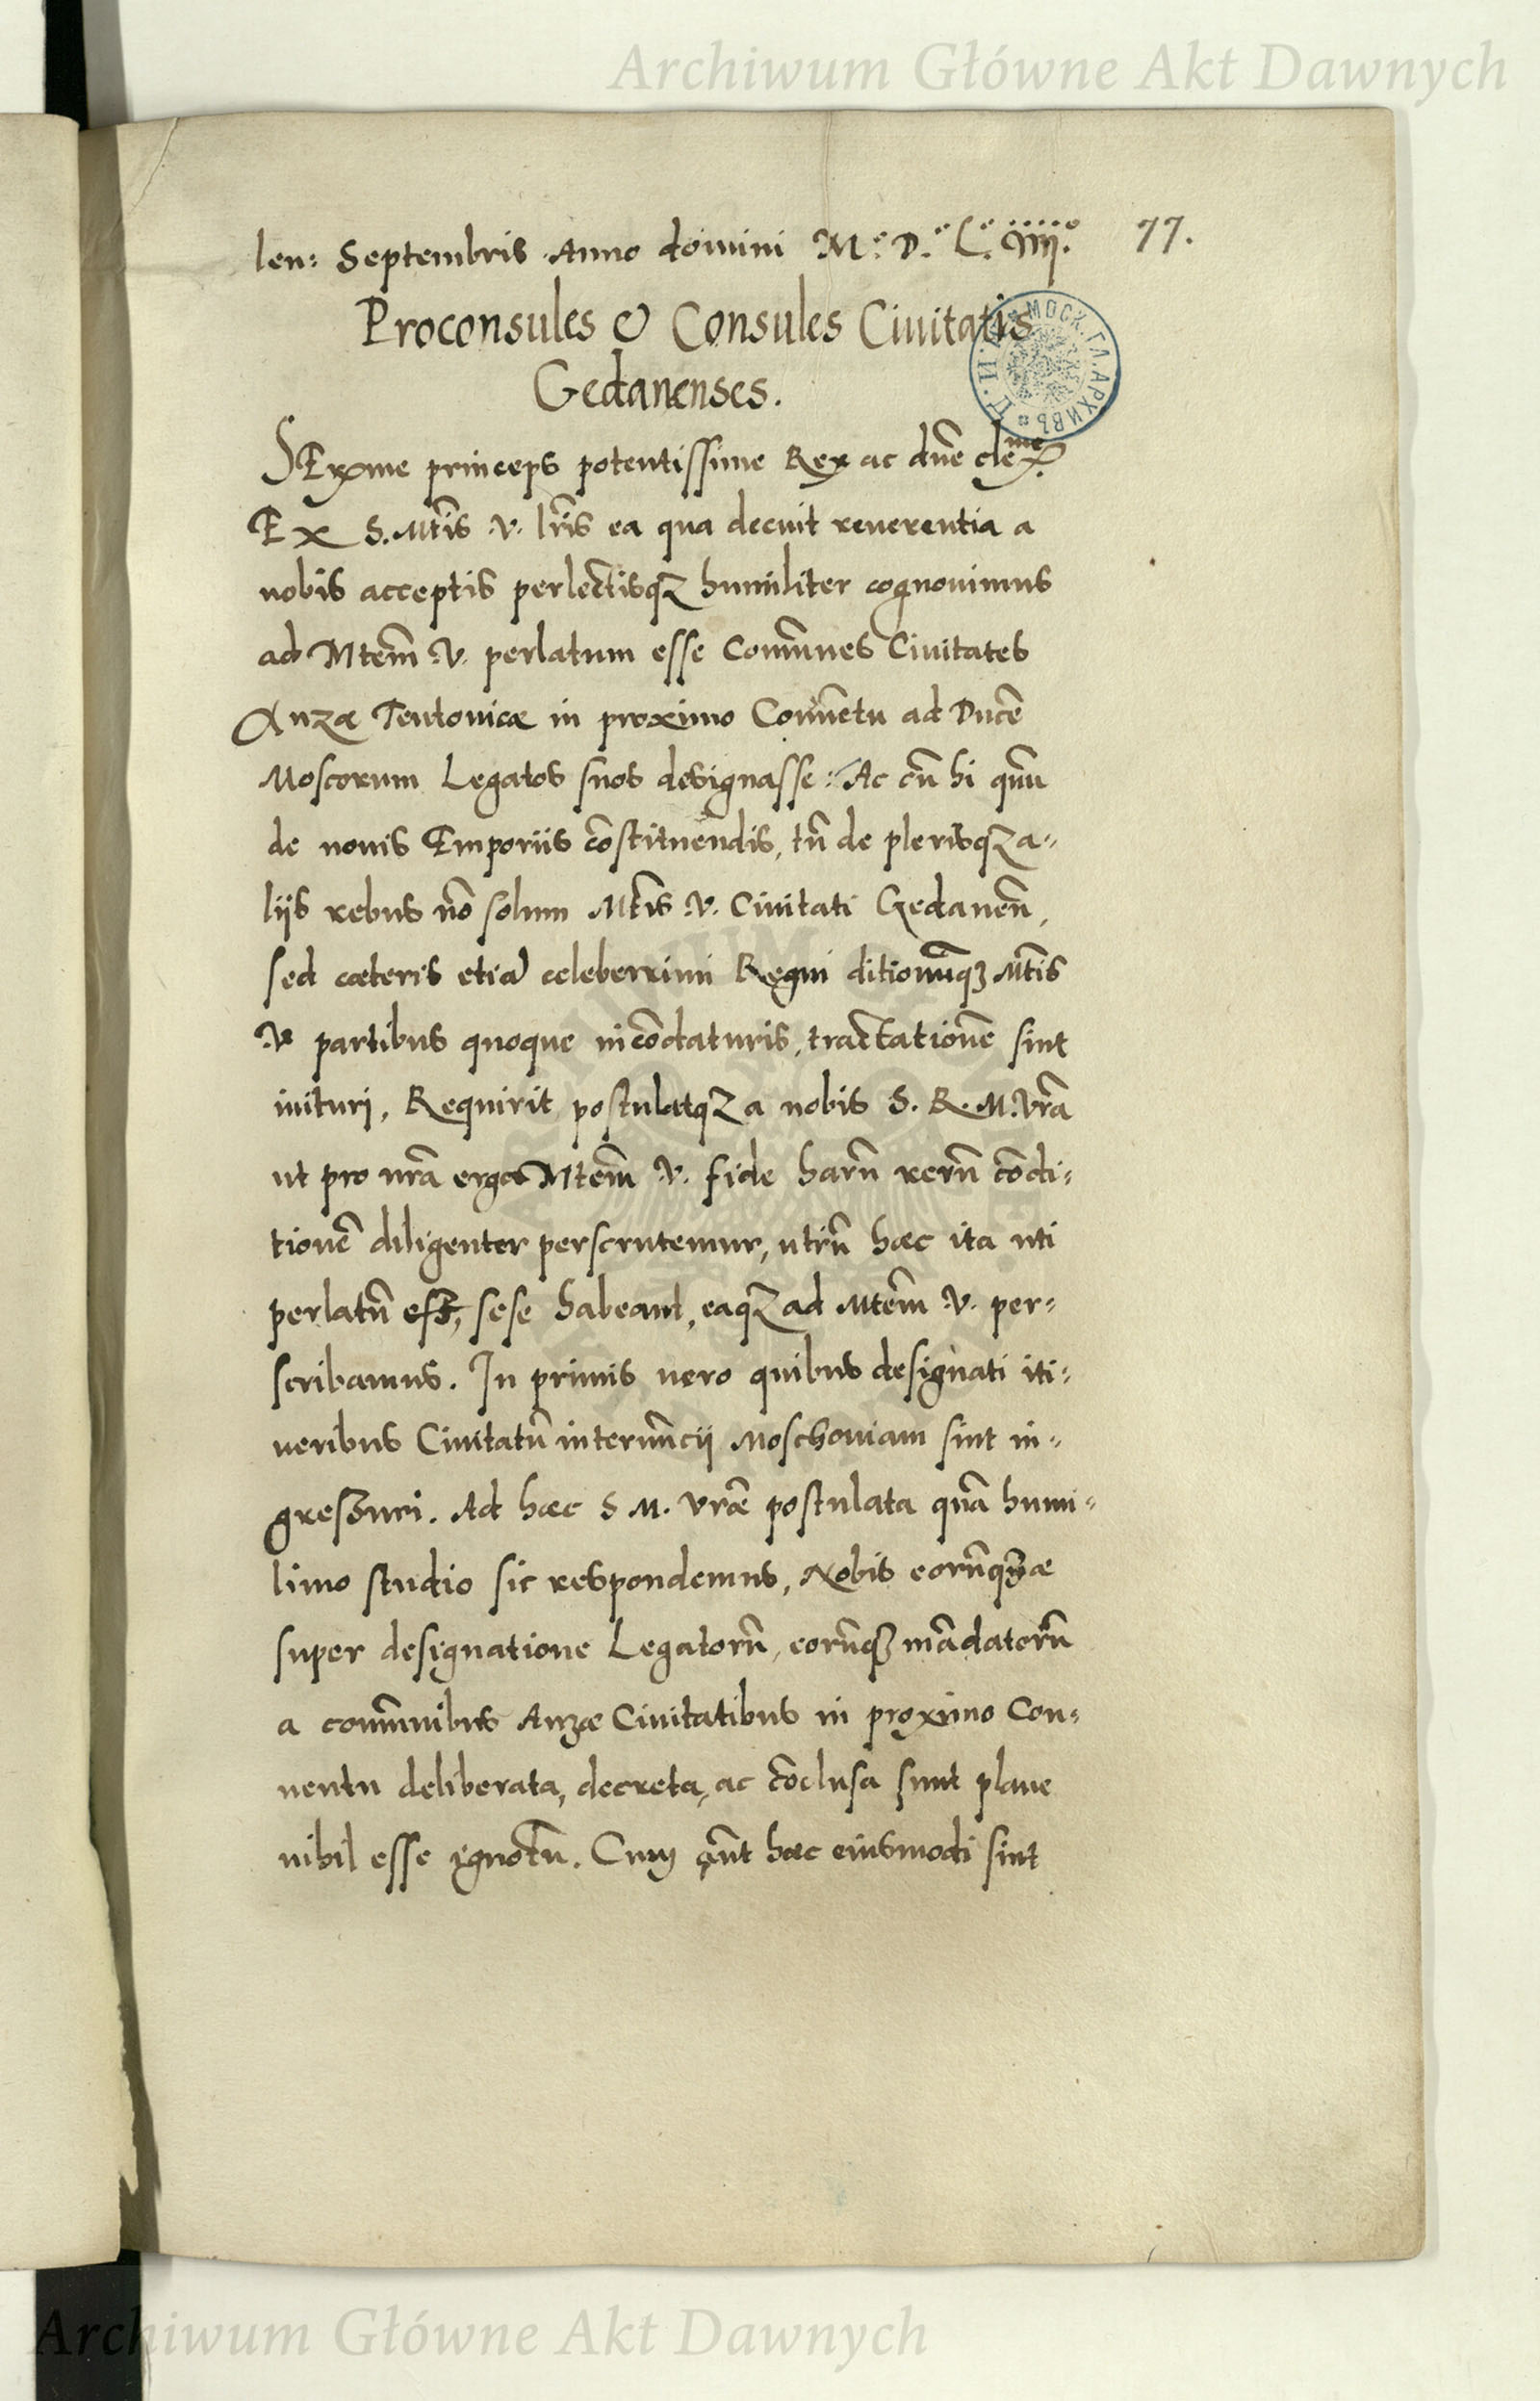 Archiwum Główne Akt Dawnych
len: Septembris Anno domini M.° D.° L.° iiij.° 77.
Proconsules & Consules Ciuitatis
Gedanenses.
SErx̃me princeps potentissime Rex ac dñe cleme.
Ex S. Mtis V. lr̃is ea qua decuit reuerentia a
nobis acceptis perlectisqꝫ humiliter cognouimus
ad Mtem̃ V. perlatum esse Com̃unes Ciuitates
Anzæ Teutonicæ in proximo Conuẽtu ad Ducẽ
Moscorum Legatos suos designasse: Ac cũ hi quũ
de nouis Emporiis cõstituendis, tũ de plerisqꝫ a-
liis rebus nõ solum Mtis V. Ciuitati Gedaneñ,
sed cæteris etiã celeberrimi Regni ditionũqꝫ Mtis
V partibus quoque incõdaturis, tractationẽ sint
inituri, Requirit postulatqꝫ a nobis S. R. M. Vrã
ut pro nrã erga Mtem̃ V. fide harũ rerũ cõdi-
tionẽ diligenter perscrutemur, utrũ hæc ita uti
perlatũ est, sese habeant, eaqꝫ ad Mtem̃ V. per-
scribamus. In primis uero quibus designati iti-
neribus Ciuitatũ internũcii Moschouiam sint in-
gressuri. Ad hæc S M. Vræ postulata quã humi-
limo studio sic respondemus, Nobis eorũ quæ
super designatione Legatorũ, eorũqꝫ mãdatorũ
a com̃unibus Anzæ Ciuitatibus in proximo Con-
uentu deliberata, decreta, ac cõclusa sunt plane
nihil esse ignotũ. Cum aũt hæc eiusmodi sint
Archiwum Główne Akt Dawnych